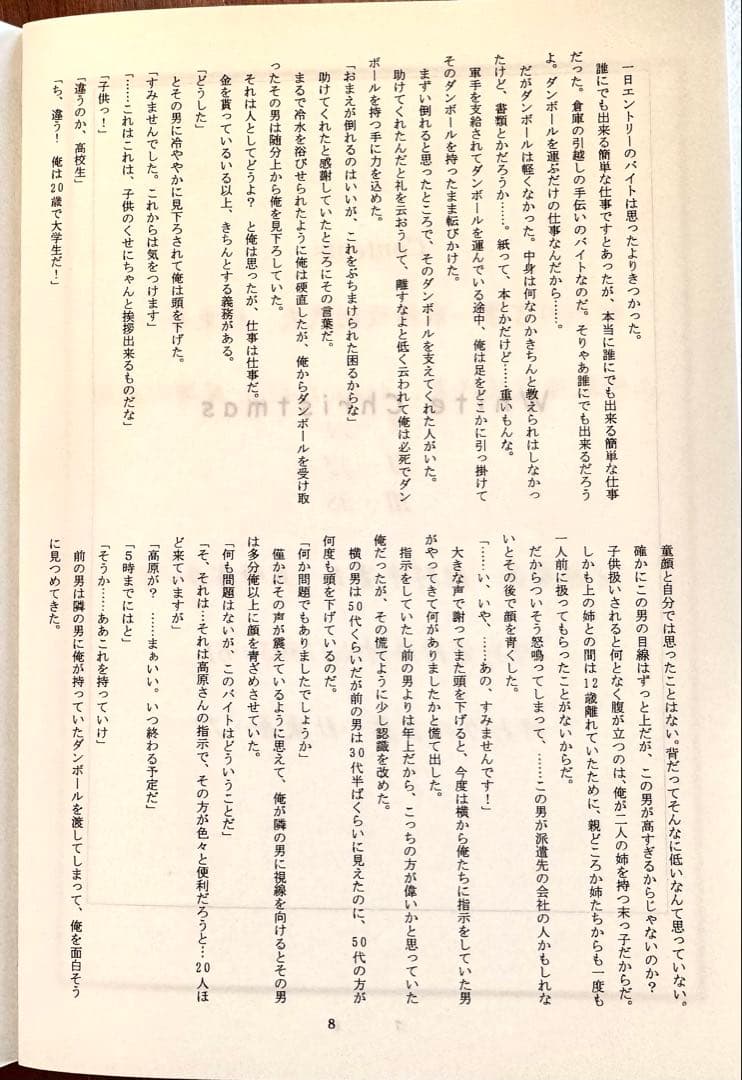 一日エントリーのバイトは思ったよりきつかった。
誰にでも出来る簡単な仕事ですとあったが、本当に誰にでも出来る簡単な仕事
だった。倉庫の引越しの手伝いのバイトなのだ。そりゃあ誰にでも出来るだろう
よ。ダンボールを運ぶだけの仕事なんだから……。
だがダンボールは軽くなかった。中身は何なのかきちんと教えられはしなかっ
たけど、書類とかだろうか……。紙って、本とかだけど……重いもんな。
軍手を支給されてダンボールを運んでいる途中、俺は足をどこかに引っ掛けて
そのダンボールを持ったまま転びかけた。
まずい倒れると思ったところで、そのダンボールを支えてくれた人がいた。
助けてくれたんだと礼を云おうして、離すなよと低く云われて俺は必死でダン
ボールを持つ手に力を込めた。
「おまえが倒れるのはいいが、これをぶちまけられた困るからな」
助けてくれたと感謝していたところにその言葉だ。
まるで冷水を浴びせられたように俺は硬直したが、俺からダンボールを受け取
ったその男は随分上から俺を見下ろしていた。
それは人としてどうよ？　と俺は思ったが、仕事は仕事だ。
金を貰っているいる以上、きちんとする義務がある。
「どうした」
とその男に冷ややかに見下ろされて俺は頭を下げた。
「すみませんでした。これからは気をつけます」
「……これはこれは、子供のくせにちゃんと挨拶出来るものだな」
「子供っ！」
「違うのか、高校生」
「ち、違う！　俺は20歳で大学生だ！」
童顔と自分では思ったことはない。背だってそんなに低いなんて思っていない。
確かにこの男の目線はずっと上だが、この男が高すぎるからじゃないのか？
子供扱いされると何となく腹が立つのは、俺が二人の姉を持つ末っ子だからだ。
しかも上の姉との間は12歳離れていたために、親どころか姉たちからも一度も
一人前に扱ってもらったことがないからだ。
だからついそう怒鳴ってしまって、……この男が派遣先の会社の人かもしれな
いとその後で顔を青くした。
「……い、いや、……あの、すみませんです！」
大きな声で謝ってまた頭を下げると、今度は横から俺たちに指示をしていた男
がやってきて何がありましたかと慌て出した。
指示をしていたし前の男よりは年上だから、こっちの方が偉いかと思っていた
俺だったが、その慌てように少し認識を改めた。
横の男は50代くらいだが前の男は30代半ばくらいに見えたのに、50代の方が
何度も頭を下げているのだ。
「何か問題でもありましたでしょうか」
僅かにその声が震えているように思えて、俺が隣の男に視線を向けるとその男
は多分俺以上に顔を青ざめさせていた。
「何も問題はないが、このバイトはどういうことだ」
「そ、それは…それは高原さんの指示で、その方が色々と便利だろうと…20人ほ
ど来ていますが」
「高原が？　……まぁいい。いつ終わる予定だ」
「5時までにはと」
「そうか……ああこれを持っていけ」
前の男は隣の男に俺が持っていたダンボールを渡してしまって、俺を面白そう
に見つめてきた。
8